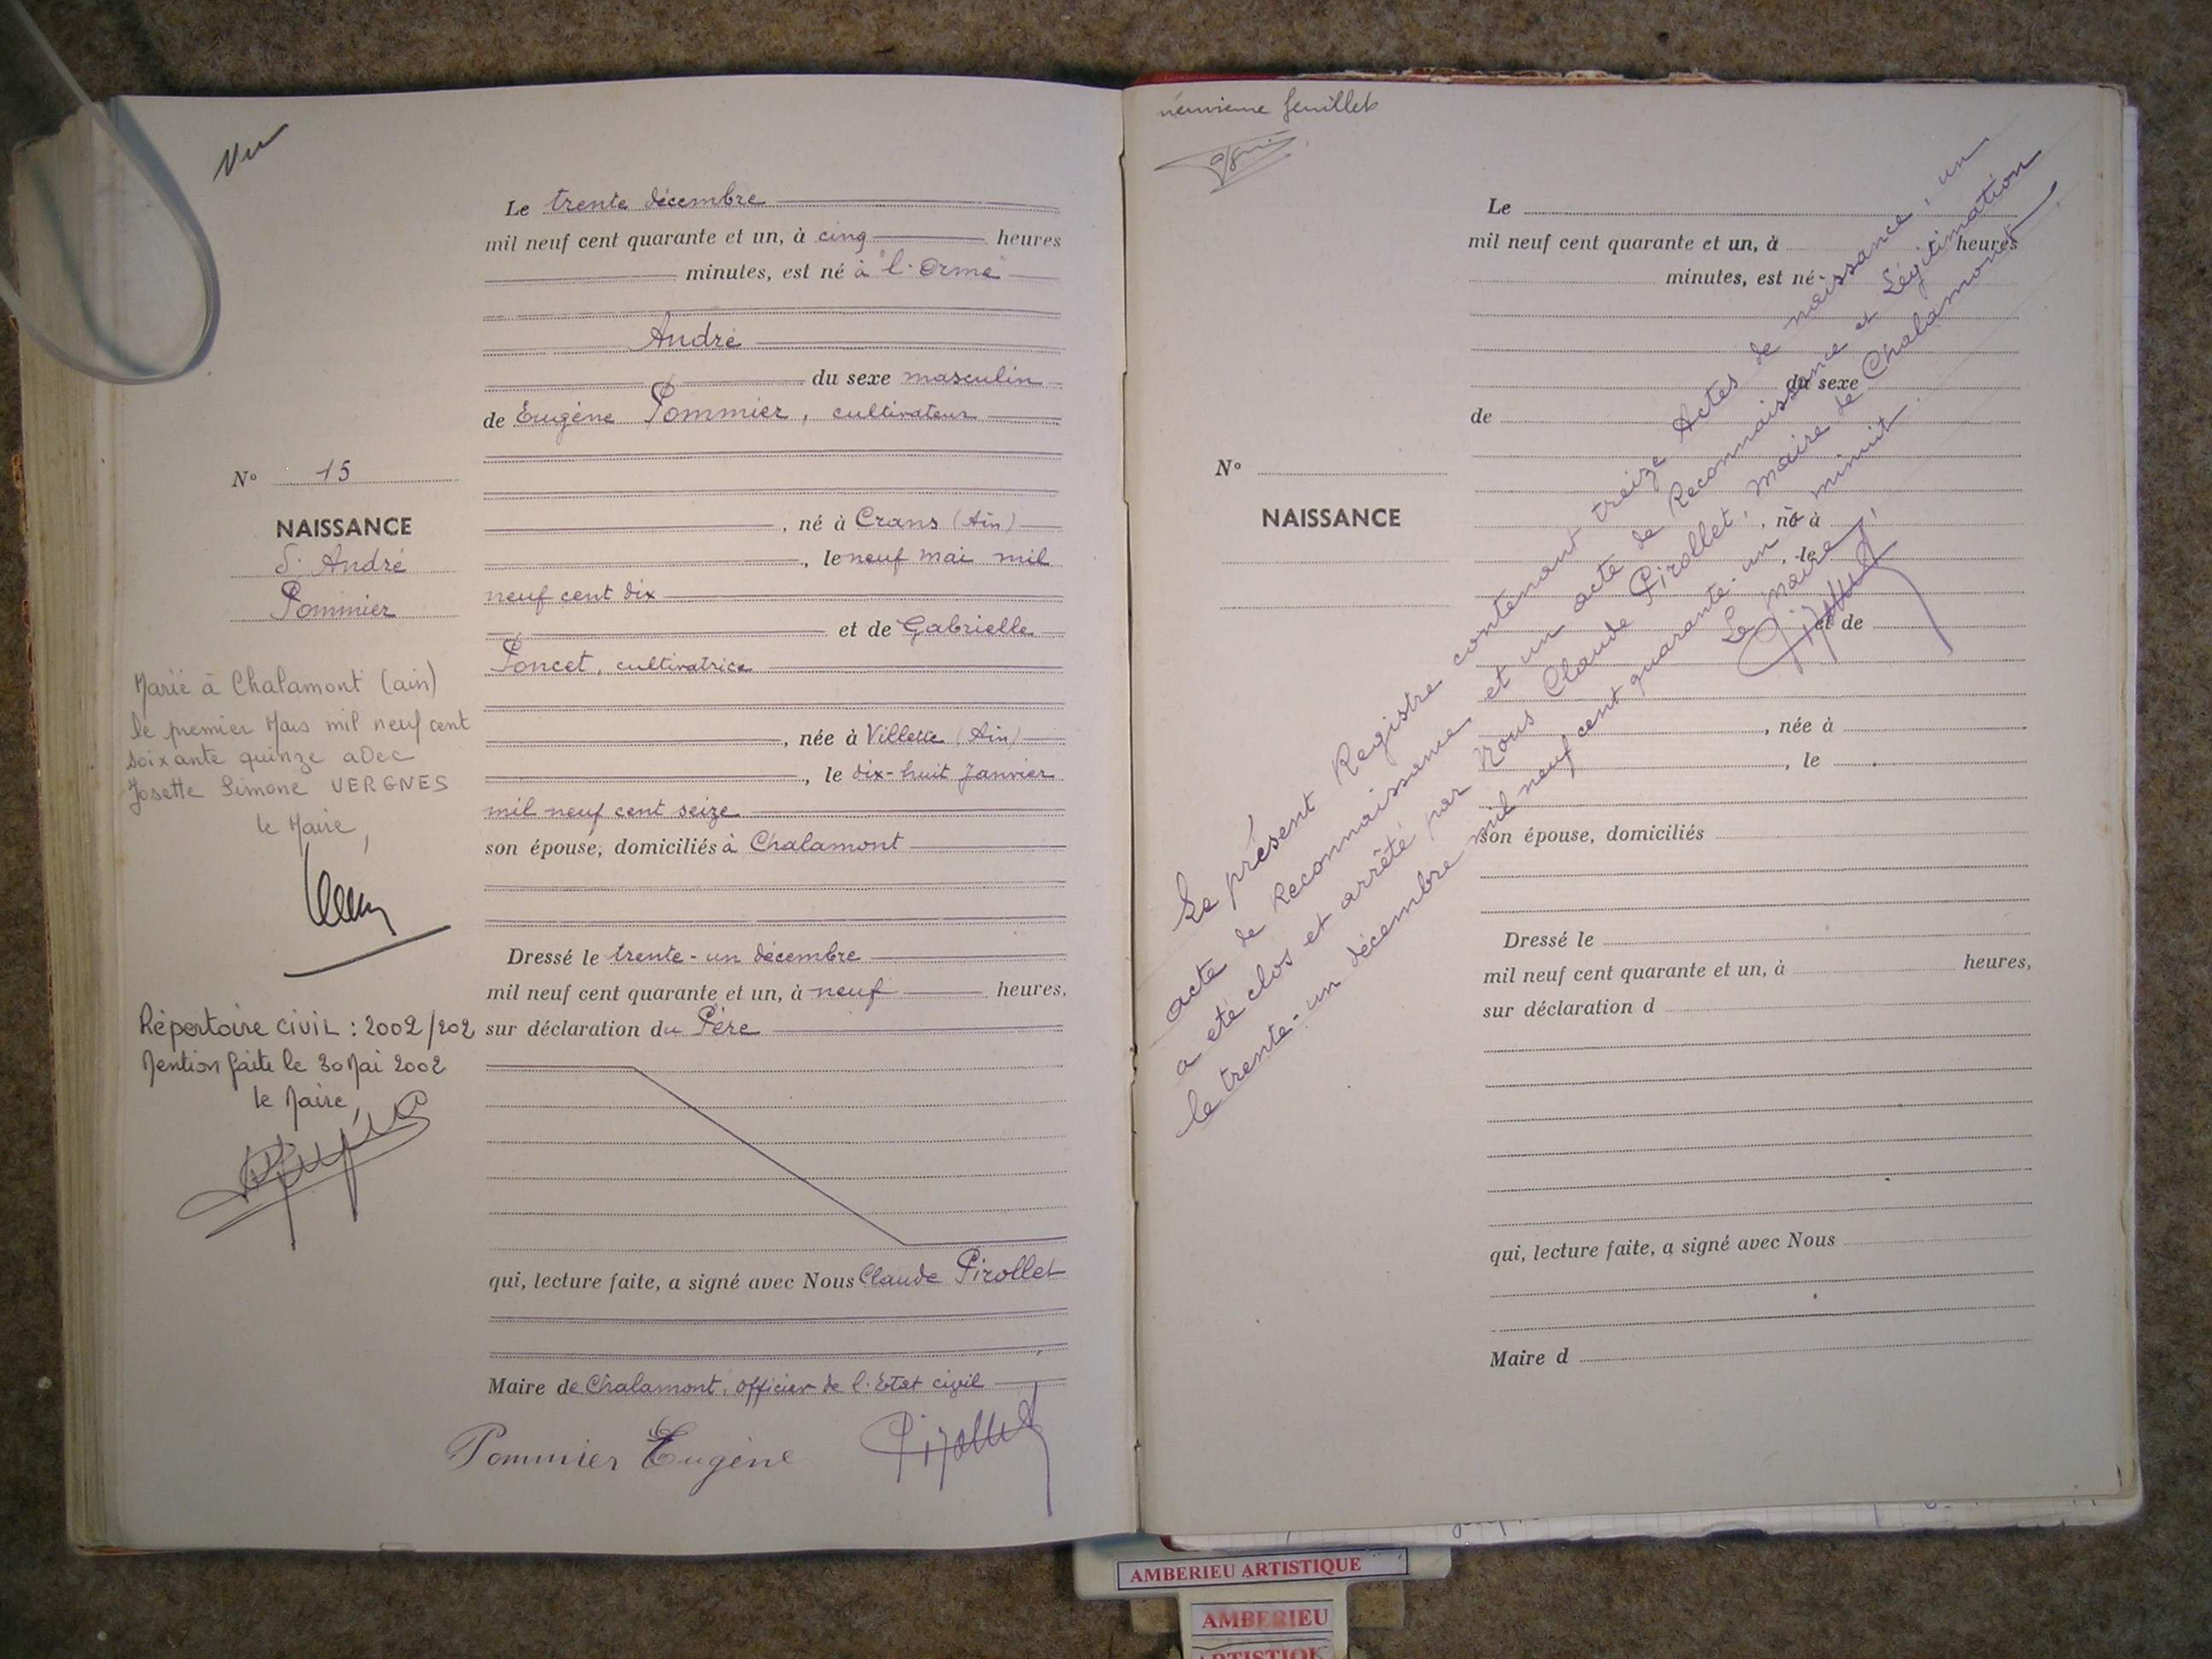 Vu
Le trente décembre
mil neuf cent quarante et un, à cinq heures
minutes, est né à "l'Orme"
André
du sexe masculin
de Eugène Pommier, cultivateur
, né à Crans (Ain)
, le neuf mai mil
neuf cent dix
et de Gabrielle
Poncet, cultivatrice
, née à Villette (Ain)
, le dix-huit Janvier
mil neuf cent seize
son épouse, domiciliés à Chalamont
Dressé le trente-un décembre
mil neuf cent quarante et un, à neuf heures,
sur déclaration du Père
qui, lecture faite, a signé avec Nous Claude Pirollet
Maire de Chalamont, officier de l'Etat civil
Pommier Eugène
Pirollet
N° 15
NAISSANCE
André
Pommier
Marié à Chalamont (ain)
le premier Mars mil neuf cent
soixante quinze avec
Josette Simone VERGNES
le Maire,
Répertoire civil : 2002/202
Mention faite le 30 Mai 2002
le Maire,
neuvieme feuillet
Le
mil neuf cent quarante et un, à heures
minutes, est né
du sexe
de
N°
NAISSANCE
, né à
, le
et de
, née à
, le
son épouse, domiciliés
Dressé le
mil neuf cent quarante et un, à heures,
sur déclaration d
qui, lecture faite, a signé avec Nous
Maire d
Le présent Registre contenant treize Actes de naissance, un
acte de Reconnaissance et un acte de Reconnaissance et Légitimation
a été clos et arrêté par Nous Claude Pirollet, Maire de Chalamont
le trente-un décembre mil neuf cent quarante-un minuit.
Le Maire,
Pirollet
AMBERIEU ARTISTIQUE
AMBERIEU
ARTISTIQUE